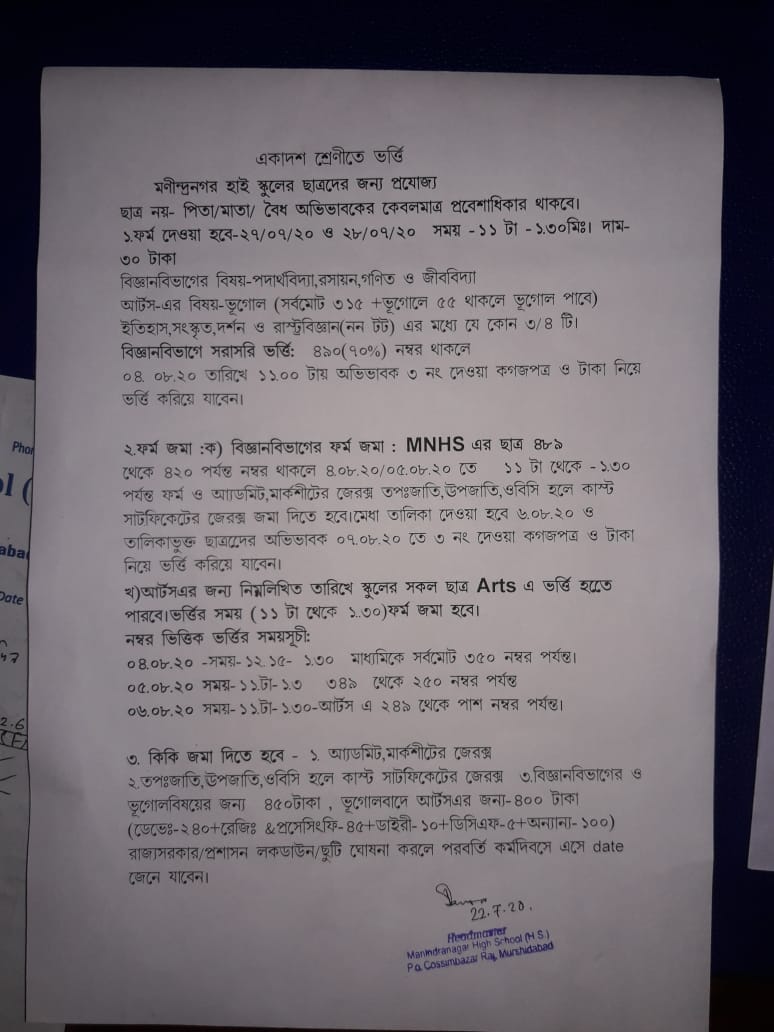 একাদশ শ্রেণীতে ভর্ত্তি
মণীন্দ্রনগর হাই স্কুলের ছাত্রদের জন্য প্রযোজ্য
ছাত্র নয়- পিতা/মাতা/ বৈধ অভিভাবকের কেবলমাত্র প্রবেশাধিকার থাকবে।
১.ফর্ম দেওয়া হবে-২৭/০৭/২০ ও ২৮/০৭/২০ সময় -১১ টা -১.৩০মিঃ। দাম-
৩০ টাকা
বিজ্ঞানবিভাগের বিষয়-পদার্থবিদ্যা,রসায়ন,গণিত ও জীববিদ্যা
আর্টস-এর বিষয়-ভূগোল (সর্বমোট ৩১৫ +ভূগোলে ৫৫ থাকলে ভূগোল পাবে)
ইতিহাস,সংস্কৃত,দর্শন ও রাস্ট্রবিজ্ঞান(নন টট) এর মধ্যে যে কোন ৩/৪ টি।
বিজ্ঞানবিভাগে সরাসরি ভর্ত্তি: ৪৯০(৭০%) নম্বর থাকলে
০৪. ০৮.২০ তারিখে ১১.০০ টায় অভিভাবক ৩ নং দেওয়া কগজপত্র ও টাকা নিয়ে
ভর্ত্তি করিয়ে যাবেন।
২.ফর্ম জমা :ক) বিজ্ঞানবিভাগের ফর্ম জমা : MNHS এর ছাত্র ৪৮৯
থেকে ৪২০ পর্যন্ত নম্বর থাকলে ৪.০৮.২০/০৫.০৮.২০ তে ১১ টা থেকে -১.৩০
পর্যন্ত ফর্ম ও অ্যাডমিট,মার্কশীটের জেরক্স তপঃজাতি,উপজাতি,ওবিসি হলে কাস্ট
সার্টফিকেটের জেরক্স জমা দিতে হবে।মেধা তালিকা দেওয়া হবে ৬.০৮.২০ ও
তালিকাভুক্ত ছাত্রদের অভিভাবক ০৭.০৮.২০ তে ৩ নং দেওয়া কগজপত্র ও টাকা
নিয়ে ভর্ত্তি করিয়ে যাবেন।
খ)আর্টসএর জন্য নিম্নলিখিত তারিখে স্কুলের সকল ছাত্র Arts এ ভর্ত্তি হতে
পারবে।ভর্ত্তির সময় (১১ টা থেকে ১.৩০)ফর্ম জমা হবে।
নম্বর ভিত্তিক ভর্ত্তির সময়সূচী:
০৪.০৮.২০ -সময়- ১২.১৫- ১.৩০ মাধ্যমিকে সর্বমোট ৩৫০ নম্বর পর্যন্ত।
০৫.০৮.২০ সময়-১১টা-১.৩ ৩৪৯ থেকে ২৫০ নম্বর পর্যন্ত
০৬.০৮.২০ সময়-১১টা-১.৩০-আর্টস এ ২৪৯ থেকে পাশ নম্বর পর্যন্ত।
৩. কিকি জমা দিতে হবে - ১. অ্যাডমিট,মার্কশীটের জেরক্স
২.তপঃজাতি,উপজাতি,ওবিসি হলে কাস্ট সার্টফিকেটের জেরক্স ৩.বিজ্ঞানবিভাগের ও
ভূগোলবিষয়ের জন্য ৪৫০টাকা , ভূগোলবাদে আর্টসএর জন্য-৪০০ টাকা
(ডেভেঃ-২৪০+রেজিঃ &প্রসেসিংফি-৪৫+ডাইরী-১০+ডিসিএফ-৫+অন্যান্য-১০০)
রাজ্যসরকার/প্রশাসন লকডাউন/ছুটি ঘোষনা করলে পরবর্তি কর্মদিবসে এসে date
জেনে যাবেন।
22.7.20.
Headmaster
Manindranagar High School (H.S.)
P.o. Cossimbazar Raj, Murshidabad
Phon
abad
Date